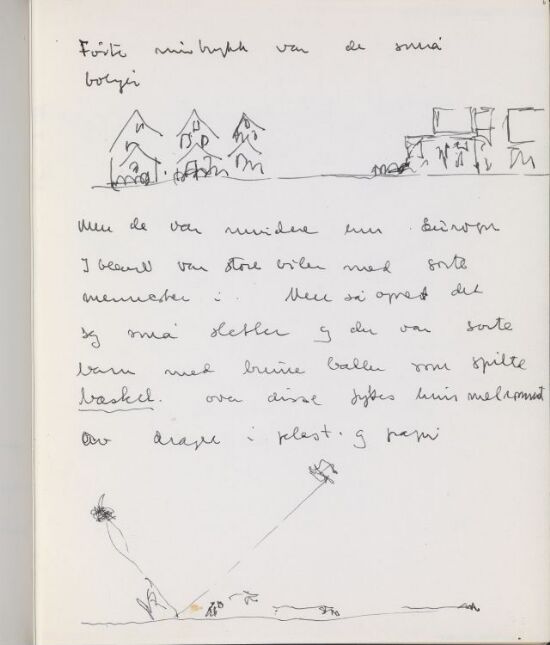 Første inntrykk var de små
boliger
Men de var mindre enn Europa
I blant var store biler med sorte
mennesker i. Men så åpnet det
seg små sletter og der var sorte
barn med brune baller som spilte
basket. over disse
av drager i plast. og papir